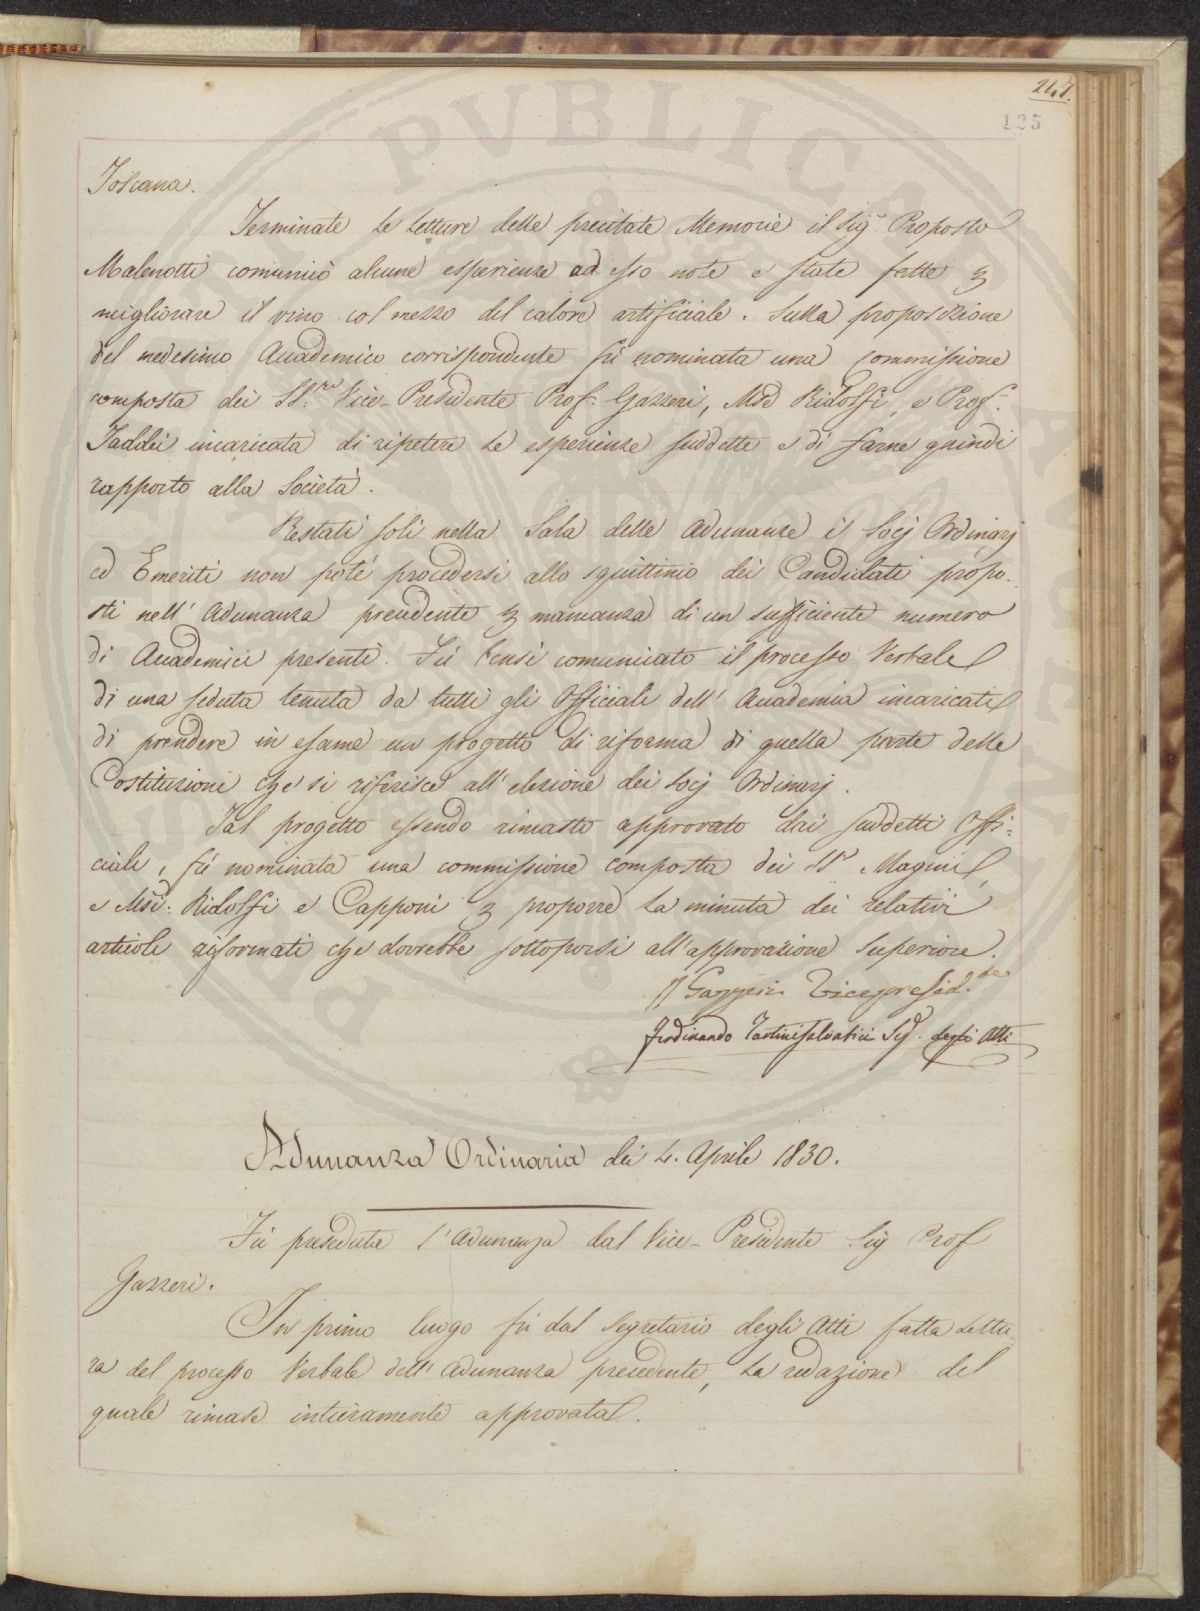 247.
125
Toscana.
Terminate le letture delle precitate Memorie il Sig.r Proposto
Malenotti comunicò alcune esperienze ad esso note e state fatte p
migliorare il vino col mezzo del calore artificiale. Sulla proposizione
del medesimo Accademico corrispondente fù nominata una commissione
composta dei SS.ri Vice-Presidente Prof. Gazzeri, Mse Ridolfi, e Prof.
Taddei incaricata di ripetere le esperienze suddette e di farne quindi
rapporto alla Società.
Restati soli nella Sala delle Adunanze i Socj Ordinarj
ed Emeriti non potè procedersi allo squittinio dei Candidati propo-
sti nell' Adunanza precedente p mancanza di un sufficiente numero
di Accademici presenti. Fù bensì comunicato il processo Verbale
di una seduta tenuta da tutti gli Officiali dell' Accademia incaricati
di prendere in esame un progetto di riforma di quella parte delle
Costituzioni che si riferisce all' elezione dei Socj Ordinarj.
Tal progetto essendo rimasto approvato dai suddetti Offi-
ciali, fù nominata una commissione composta dei SSri Magnini,
e Msi. Ridolfi e Capponi p proporre la minuta dei relativi
articoli riformati che dovrebbe sottoporsi all' approvazione Superiore.
Gazzeri Vicepresid.te
Ferdinando Tartini Salvatici Seg. degli Atti
Adunanza Ordinaria dei 4. Aprile 1830.
Fù preseduta l'Adunanza dal Vice-Presidente Sig Prof
Gazzeri.
In primo luogo fù dal Segretario degli Atti fatta lettu-
ra del processo Verbale dell' Adunanza precedente, la redazione del
quale rimase intieramente approvata.
PVBLICA